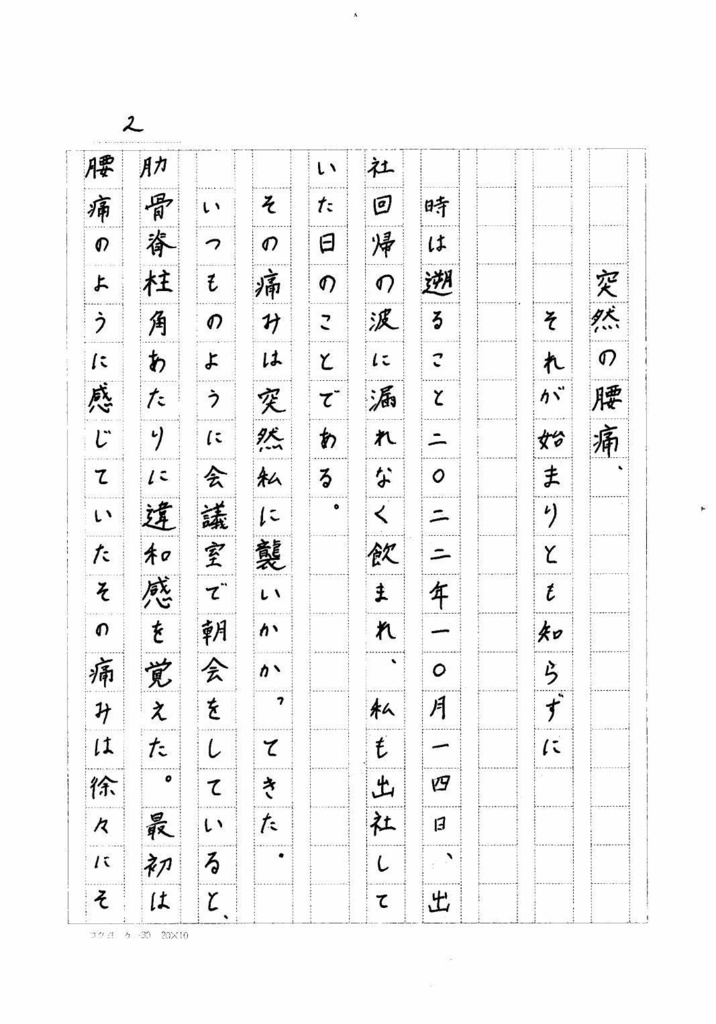 2
突然の腰痛、
それが始まりとも知らずに
時は遡ること二〇二二年一〇月一四日、出
社回帰の波に漏れなく飲まれ、私も出社して
いた日のことである。
その痛みは突然私に襲いかかってきた。
いつものように会議室で朝会をしていると、
肋骨脊柱角あたりに違和感を覚えた。最初は
腰痛のように感じていたその痛みは徐々にそ
コクヨ ケ-30 20×10